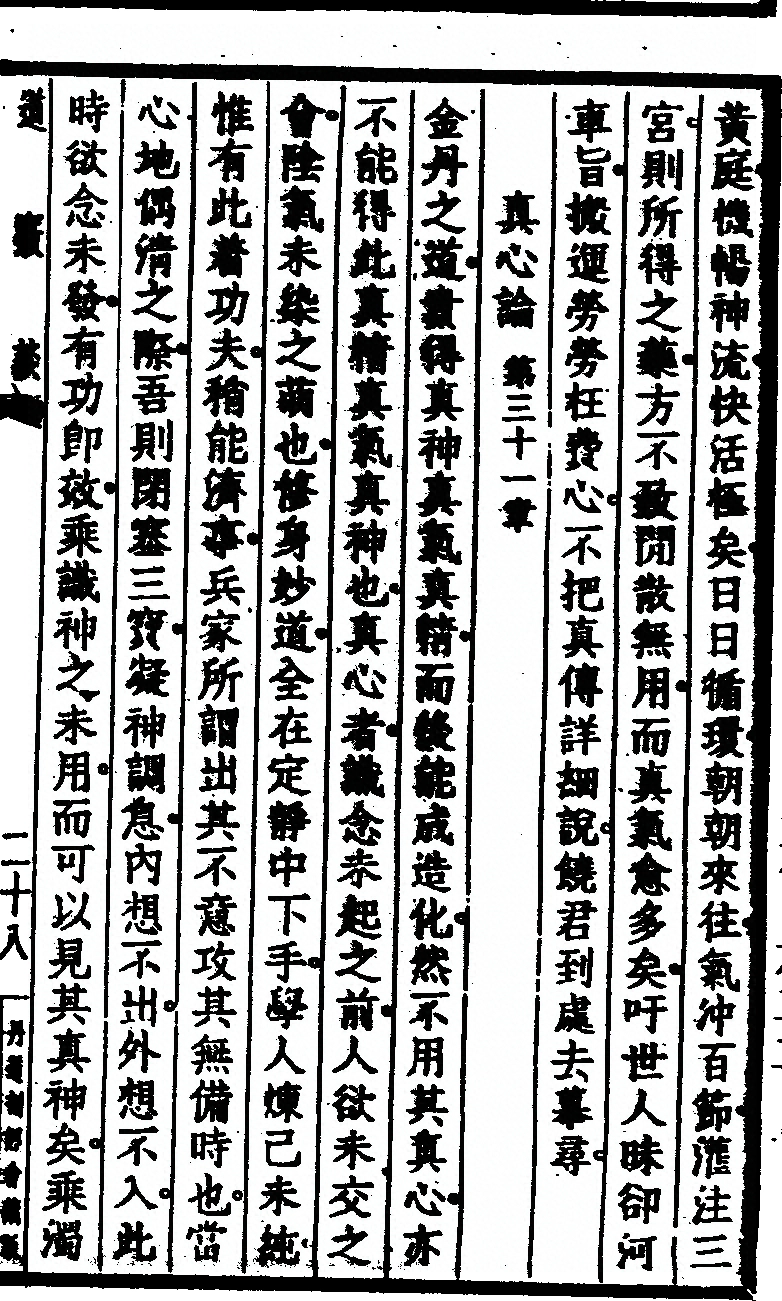 黃庭機暢神流快活極矣日日循環朝朝來往氣沖百節滙注三
宮則所得之藥方不致閒散無用而真氣愈多矣吁世人昧卻河
車旨搬運勞勞枉費心不把真傳詳細說饒君到處去摹尋
真心論 第三十一章
金丹之道貴得真神真氣真精而後能成造化然不用其真心亦
不能得此真精真氣真神也真心者識念未起之前人欲未交之
會陰氣未染之萌也修身妙道全在定靜中下手學人煉己未純
惟有此着功夫稍能濟事兵家所謂出其不意攻其無備時也當
心地偶清之際吾則閉塞三寶凝神調息內想不出外想不入此
時欲念未發有功即效乘識神之未用而可以見其真神矣乘濁
道竅談
二十八